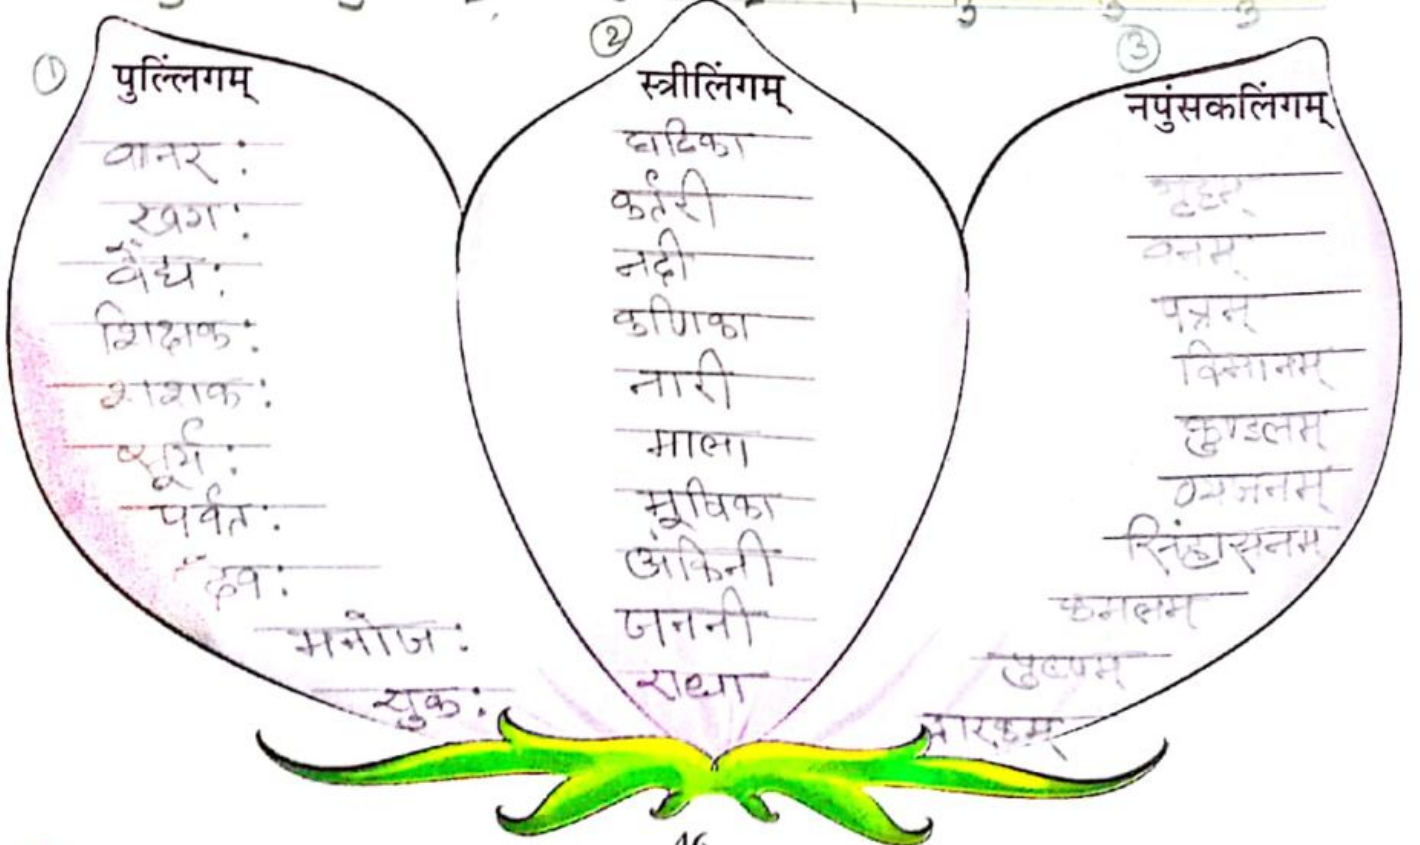 ①
पुल्लिंगम्
वानर:
खग:
वैद्य:
शिक्षक:
शशक:
सूर्य:
पर्वत:
देव:
मनोज:
शुक:
②
स्त्रीलिंगम्
घटिका
कर्तरी
नदी
कणिका
नारी
माला
मूषिका
अंकिनी
जननी
राधा
③
नपुंसकलिंगम्
गृहम्
वनम्
पत्रम्
विमानम्
कुण्डलम्
व्यजनम्
सिंहासनम्
कमलम्
पुष्पम्